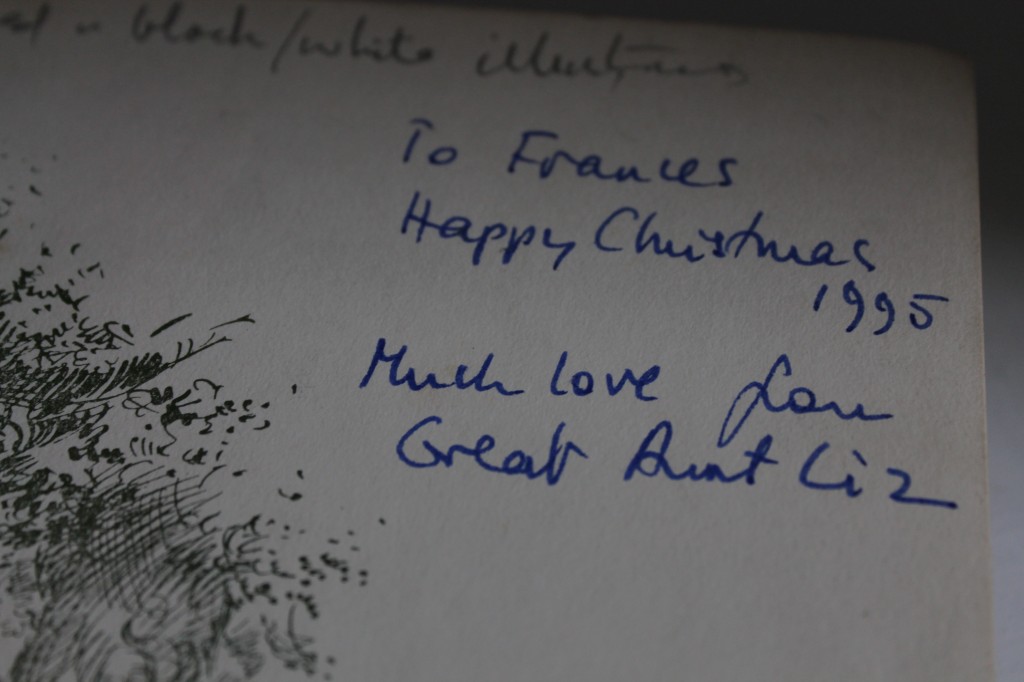 black/white illustrations
To Frances
Happy Christmas
1995
Much love from
Great Aunt Liz